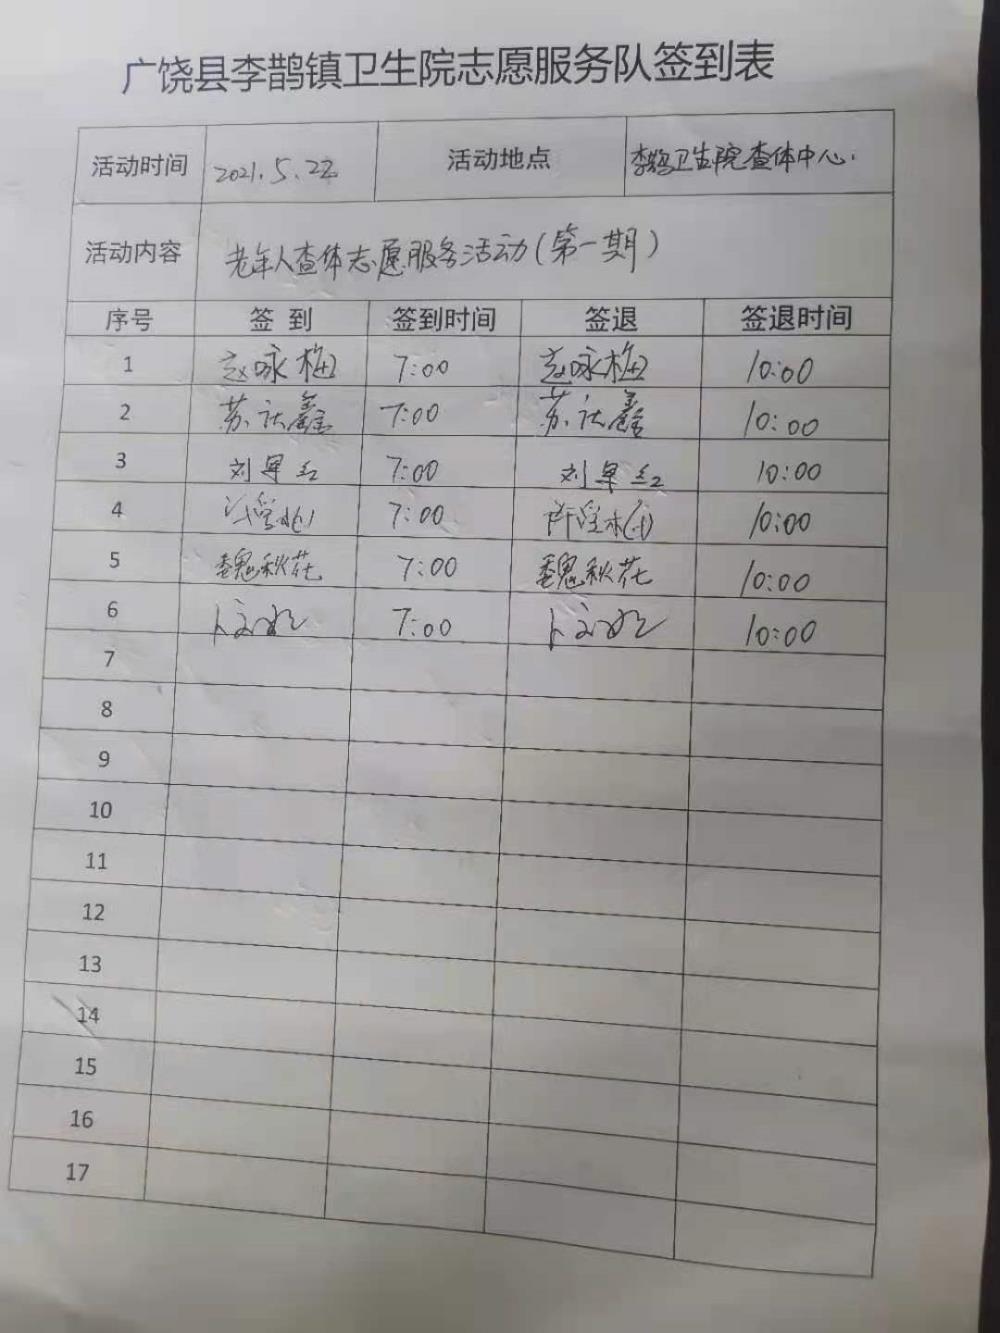 广饶县李鹊镇卫生院志愿服务队签到表
活动时间 2021.5.22 活动地点 李鹊卫生院查体中心.
活动内容 老年人查体志愿服务活动(第一期)
序号 签到 签到时间 签退 签退时间
1 赵咏梅 7:00 赵咏梅 10:00
2 苏 鑫 7:00 苏 鑫 10:00
3 刘 红 7:00 刘 红 10:00
4 7:00 10:00
5 魏秋花 7:00 魏秋花 10:00
6 7:00 10:00
7
8
9
10
11
12
13
14
15
16
17